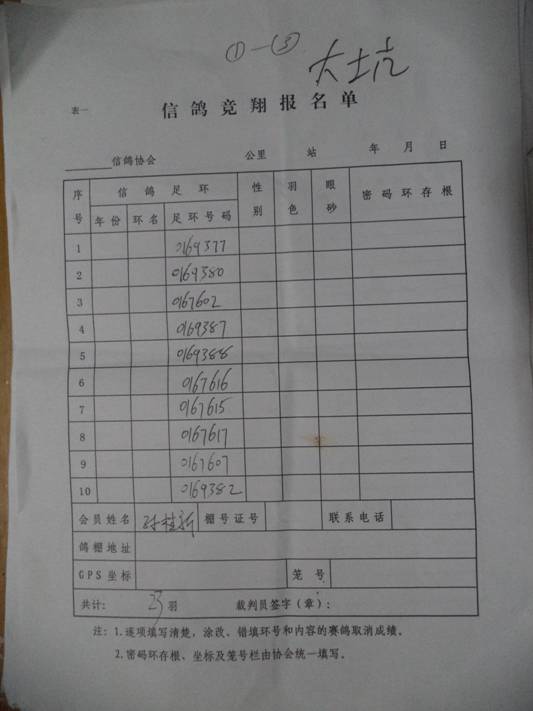 ①—③
大土坑
表一
信鸽竞翔报名单
信鸽协会 公里 站 年 月 日
序号 信鸽足环 性别 羽色 眼砂 密码环存根
年份 环名 足环号码
1 0169377
2 0169380
3 0167602
4 0169387
5 0169388
6 0167616
7 0167615
8 0167617
9 0167607
10 0169382
会员姓名 桂新 棚号证号 联系电话
鸽棚地址
GPS坐标 笼号
共计: 23 羽 裁判员签字(章):
注: 1.逐项填写清楚,涂改、错填环号和内容的赛鸽取消成绩。
2.密码环存根、坐标及笼号栏由协会统一填写。